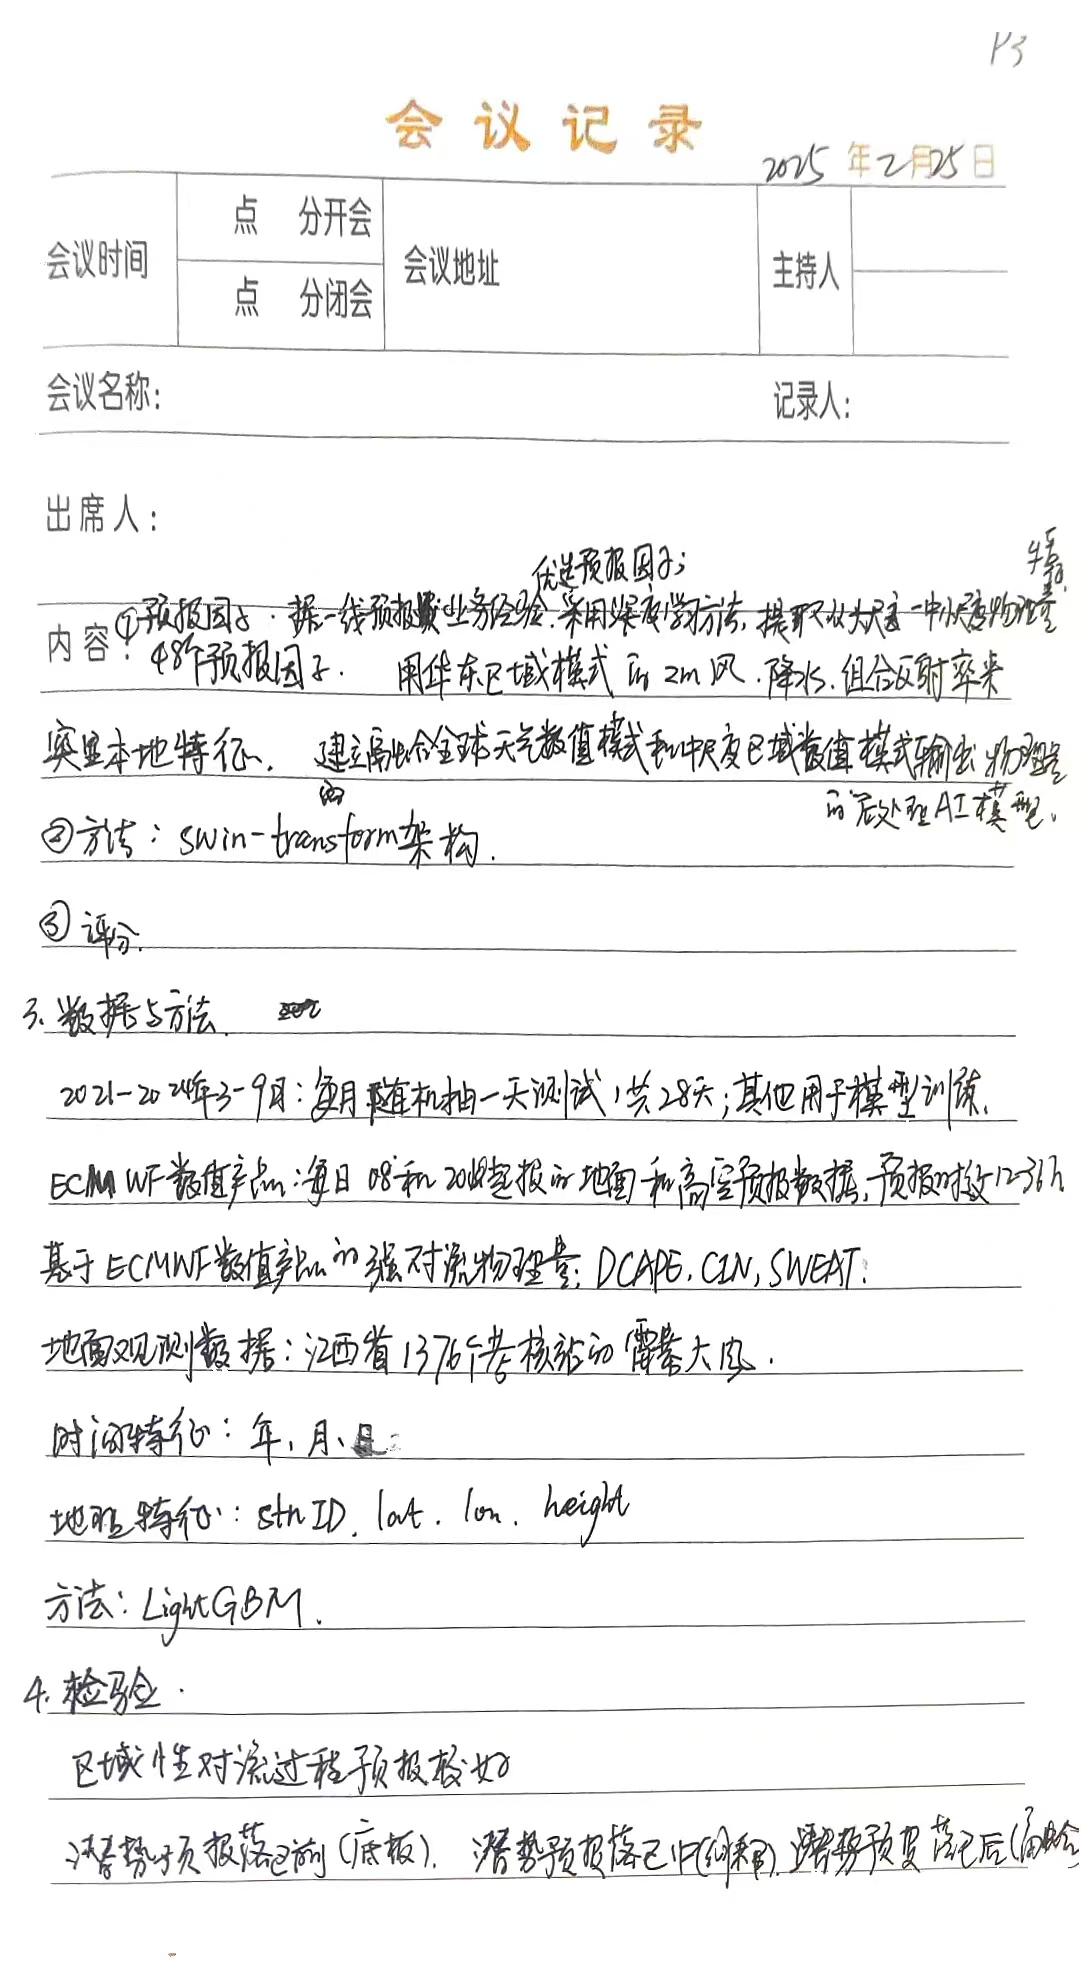 P3
会议记录
2025年2月25日
会议时间 点 分开会 会议地址 主持人
点 分闭会
会议名称: 记录人:
出席人:
优选预报因子; 特征
内容: ①预报因子. 据一线预报员业务经验. 采用深度学习方法, 提取从大尺度-中小尺度物理量
48个预报因子. 用华东区域模式的2m风、降水、组合反射率来
突显本地特征. 建立融合全球天气数值模式和中尺度区域数值模式输出物理量
的后处理AI模型.
②方法: swin-transform架构.
③评分.
3. 数据与方法.
2021-2024年3-9月: 每月随机抽一天测试, 共28天; 其他用于模型训练.
ECMWF数值产品: 每日08和20时起报的地面和高空预报数据, 预报时效12-36h
基于ECMWF数值产品的强对流物理量: DCAPE, CIN, SWEAT.
地面观测数据: 江西省1376个考核站的雷暴大风.
时间特征: 年、月、日
地理特征: stnID. lat. lon. height
方法: LightGBM.
4. 检验.
区域性对流过程预报较好
潜势预报落区前(底板). 潜势预报落区中(订正). 潜势预报落区后(